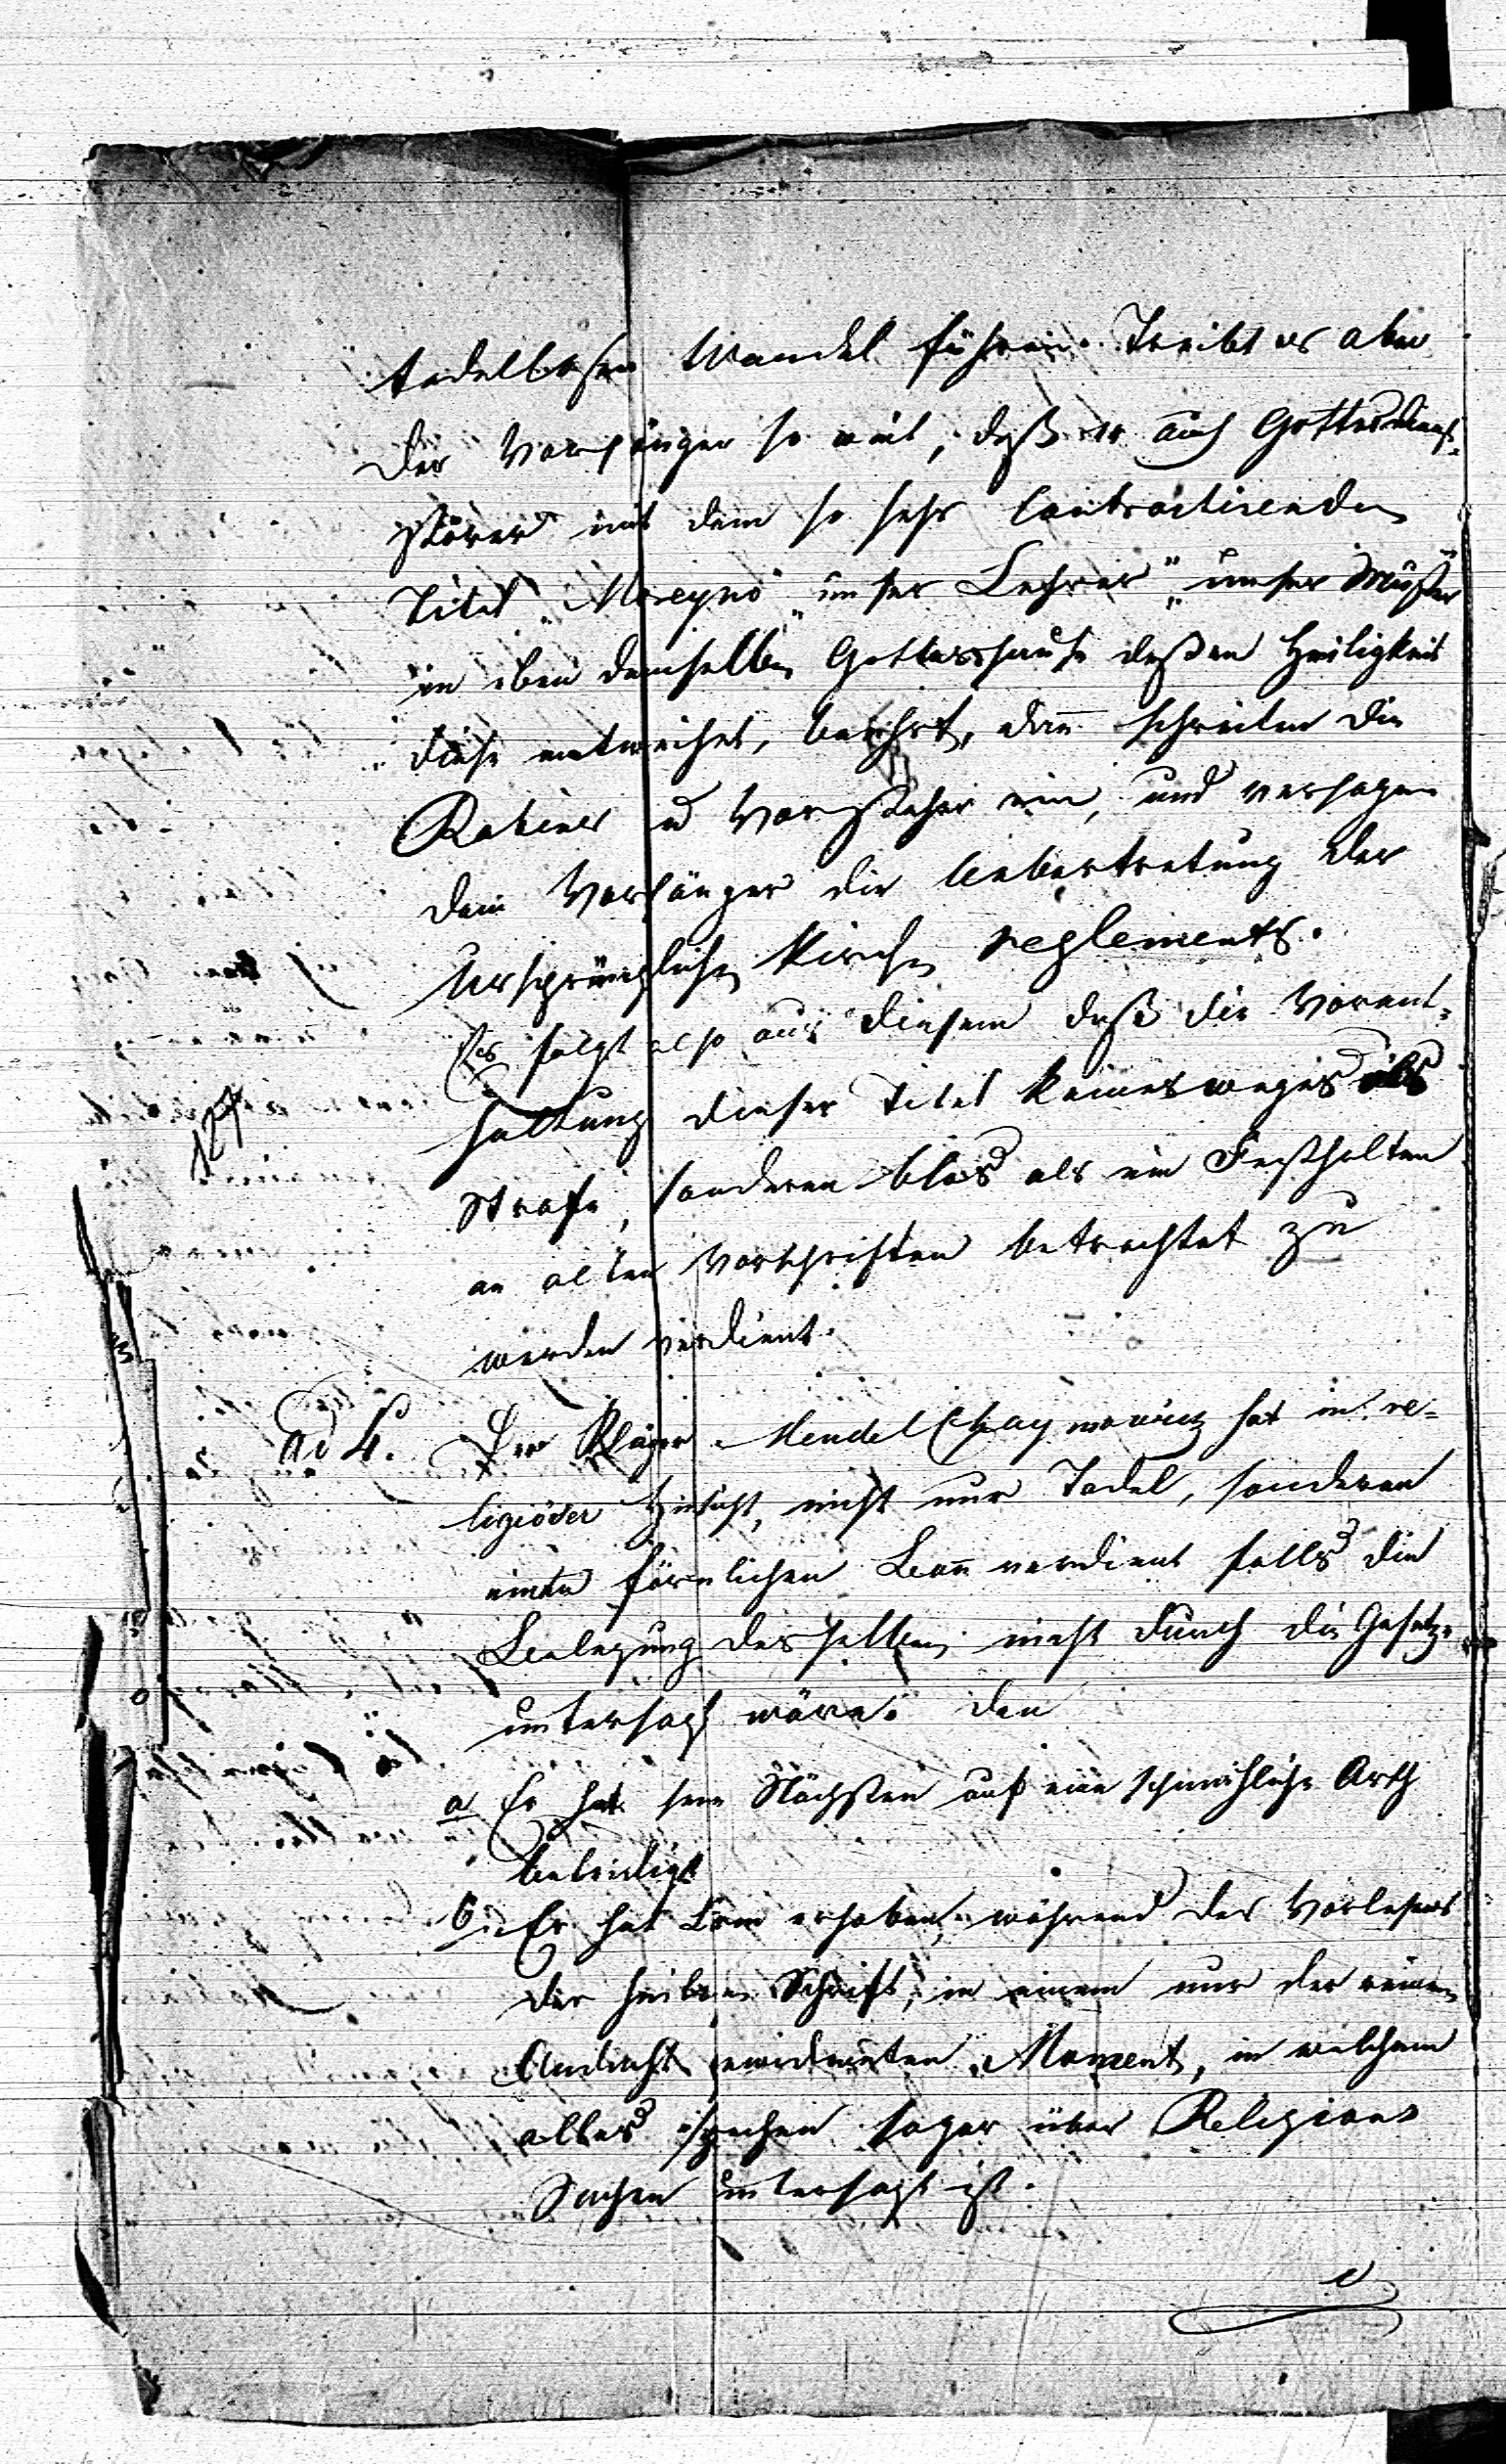 tadellosen Wandel führen. Treibt es aber
der Vorsänger so weit, daß er auch Gottesdienst-
störer mit dem so sehr Contrastirenden
Titel „Morenu" „unser Lehrer" „unser Muster
in eben demselben Gotteshause deßen Heiligkeit
diese entweihet, beehrt, dan̄ schreiten die
Rabiner u Vorsteher ein, und versagen
dem Vorsänger die Uebertretung der
Ursprünglichen Kirchen reglements.
Es folgt also aus diesem daß die Vorent-
haltung dieser Titel keinesweges als
Strafe, sonderen blos als ein Festhalten
an alten Vorschriften betrachtet zu
werden verdient.
ad 4. Der Kläger Mendel Chaymowicz hat in re-
ligiöser Hinsicht, nicht nur Tadel, sonderen
einen förmlichen Ban̄ verdient falls die
Belegung desselben nicht durch die Gesetze
untersagt wäre: den
a Er hat sein Nächsten auf eine schmähliche Arth
beleidigt
b. Er hat Lerm erhoben, während des Vorlesens
der heiligen Schrift, in einem nur der reinen
Andacht gewidmeten Moment, in welchem
alles sprechen sogar über Religions
Sachen untersagt ist.
127